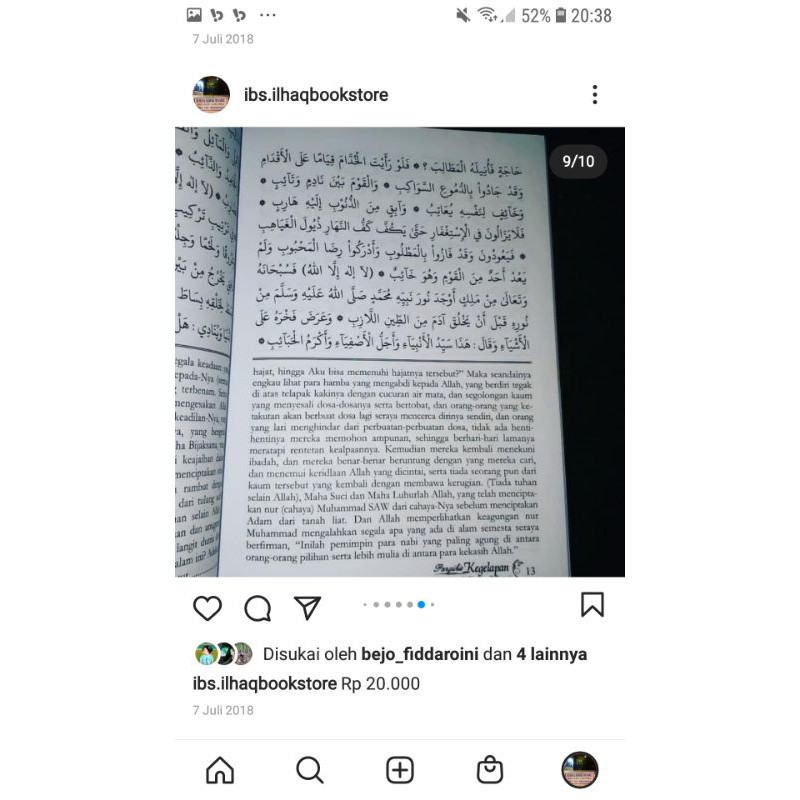 52% 20:38
7 Juli 2018
ibs.ilhaqbookstore
9/10
حَاجَةٍ فَأُنِيلَهُ الْمَطَالِبَ ؟ * فَلَوْ رَأَيْتَ الْخُدَّامَ قِيَامًا عَلَى الْأَقْدَامِ
وَقَدْ جَادُوا بِالدُّمُوعِ السَّوَاكِبِ * وَالْقَوْمَ بَيْنَ نَادِمٍ وَتَآئِبٍ *
وَخَآئِفٍ لِنَفْسِهِ يُعَاتِبُ * وَآبِقٍ مِنَ الذُّنُوْبِ إِلَيْهِ هَارِبٍ *
فَلَا يَزَالُوْنَ فِي الْاِسْتِغْفَارِ حَتَّى يَكُفَّ كَفُّ النَّهَارِ ذُيُولَ الْغَيَاهِبِ
* فَيَعُوْدُوْنَ وَقَدْ فَازُوا بِالْمَطْلُوبِ وَأَدْرَكُوا رِضَا الْمَحْبُوبِ وَلَمْ
يَعُدْ أَحَدٌ مِنَ الْقَوْمِ وَهُوَ خَآئِبٌ * (لَا إِلهَ إِلَّا اللهُ) فَسُبْحَانَهُ
وَتَعَالَى مِنْ مَلِكٍ أَوْجَدَ نُورَ نَبِيِّهِ مُحَمَّدٍ صَلَّى اللهُ عَلَيْهِ وَسَلَّمَ مِنْ
نُورِهِ قَبْلَ أَنْ يَخْلُقَ آدَمَ مِنَ الطِّينِ اللَّازِبِ * وَعَرَضَ فَخْرَهُ عَلَى
الْأَشْيَآءِ وَقَالَ : هَذَا سَيِّدُ الْأَنْبِيَآءِ وَأَجَلُّ الْأَصْفِيَآءِ وَأَكْرَمُ الْحَبَآئِبِ *
hajat, hingga Aku bisa memenuhi hajatnya tersebut?" Maka seandainya
engkau lihat para hamba yang mengabdi kepada Allah, yang berdiri tegak
di atas telapak kakinya dengan cucuran air mata, dan segolongan kaum
yang menyesali dosa-dosanya serta bertobat, dan orang-orang yang ke-
takutan akan berbuat dosa lagi seraya mencerca dirinya sendiri, dan orang
yang lari menghindar dari perbuatan-perbuatan dosa, tidak ada henti-
hentinya mereka memohon ampunan, sehingga berhari-hari lamanya
meratapi rentetan kealpaannya. Kemudian mereka kembali menekuni
ibadah, dan mereka benar-benar beruntung dengan yang mereka cari,
dan menemui keridlaan Allah yang dicintai, serta tiada seorang pun dari
kaum tersebut yang kembali dengan membawa kerugian. (Tiada tuhan
selain Allah), Maha Suci dan Maha Luhurlah Allah, yang telah mencipta-
kan nur (cahaya) Muhammad SAW dari cahaya-Nya sebelum menciptakan
Adam dari tanah liat. Dan Allah memperlihatkan keagungan nur
Muhammad mengalahkan segala apa yang ada di alam semesta seraya
berfirman, "Inilah pemimpin para nabi yang paling agung di antara
orang-orang pilihan serta lebih mulia di antara para kekasih Allah."
Kegelapan 13
Disukai oleh bejo_fiddaroini dan 4 lainnya
ibs.ilhaqbookstore Rp 20.000
7 Juli 2018